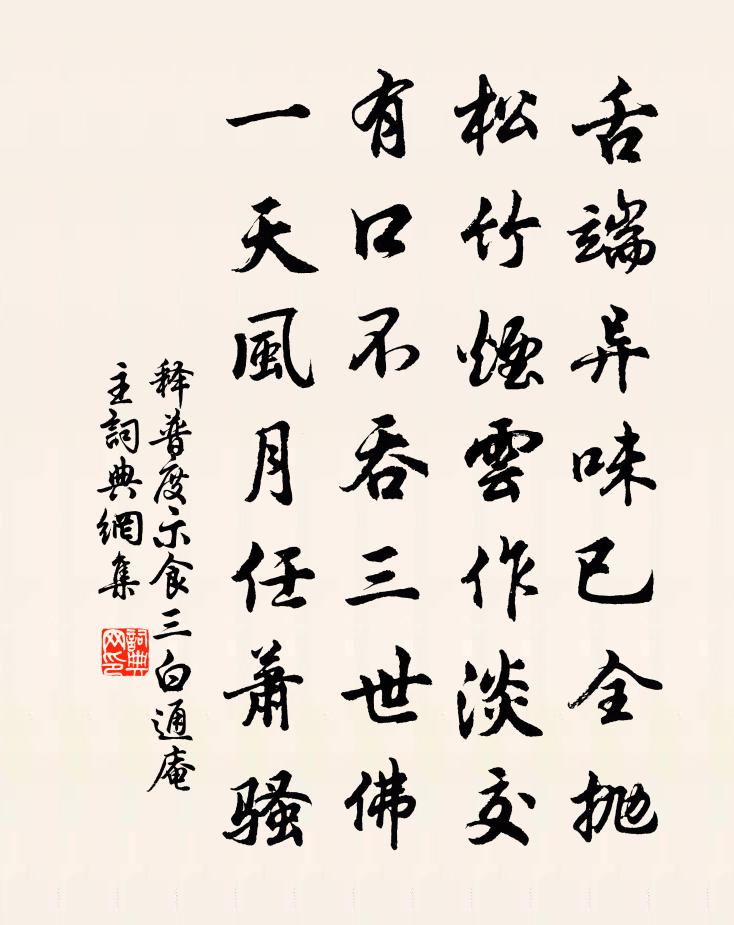 舌端异味已全抛
松竹煙雲作淡交
有口不吞三世佛
一天風月任蕭骚
释普度示食三白通庵
主詞典網集
詞典
网印